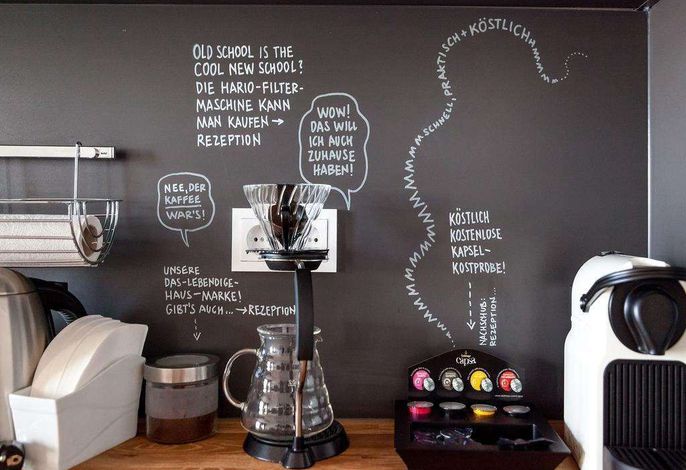 OLD SCHOOL IS THE
COOL NEW SCHOOL?
DIE HARIO-FILTER-
MASCHINE KANN
MAN KAUFEN →
REZEPTION
WOW!
DAS WILL
ICH AUCH
ZUHAUSE
HABEN!
NEE, DER
KAFFEE
WAR'S!
UNSERE
DAS-LEBENDIGE-
HAUS-MARKE!
GIBT'S AUCH... → REZEPTION
SCHNELL, PRAKTISCH + KÖSTLICH
KÖSTLICH
KOSTENLOSE
KAPSEL-
KOSTPROBE!
NACHSCHUB:
REZEPTION...
capsa